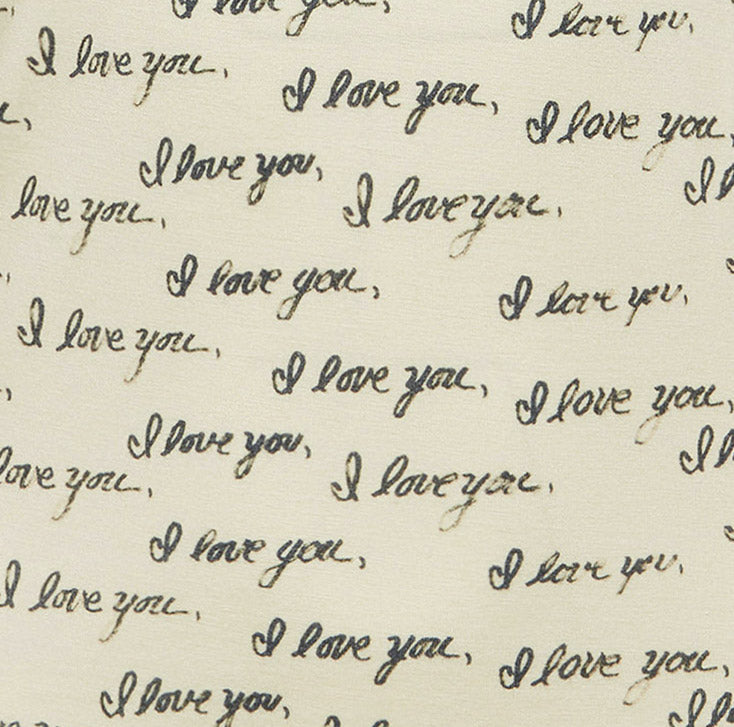 I love you,
I love you,
I love you,
I love you,
I love you,
I love you,
love you,
I love you,
I love you,
I love you,
I love you,
I love you,
I love you,
I love you,
love you,
I love you,
I love you,
I love you,
I love you,
I love you,
I love you,
I love you,